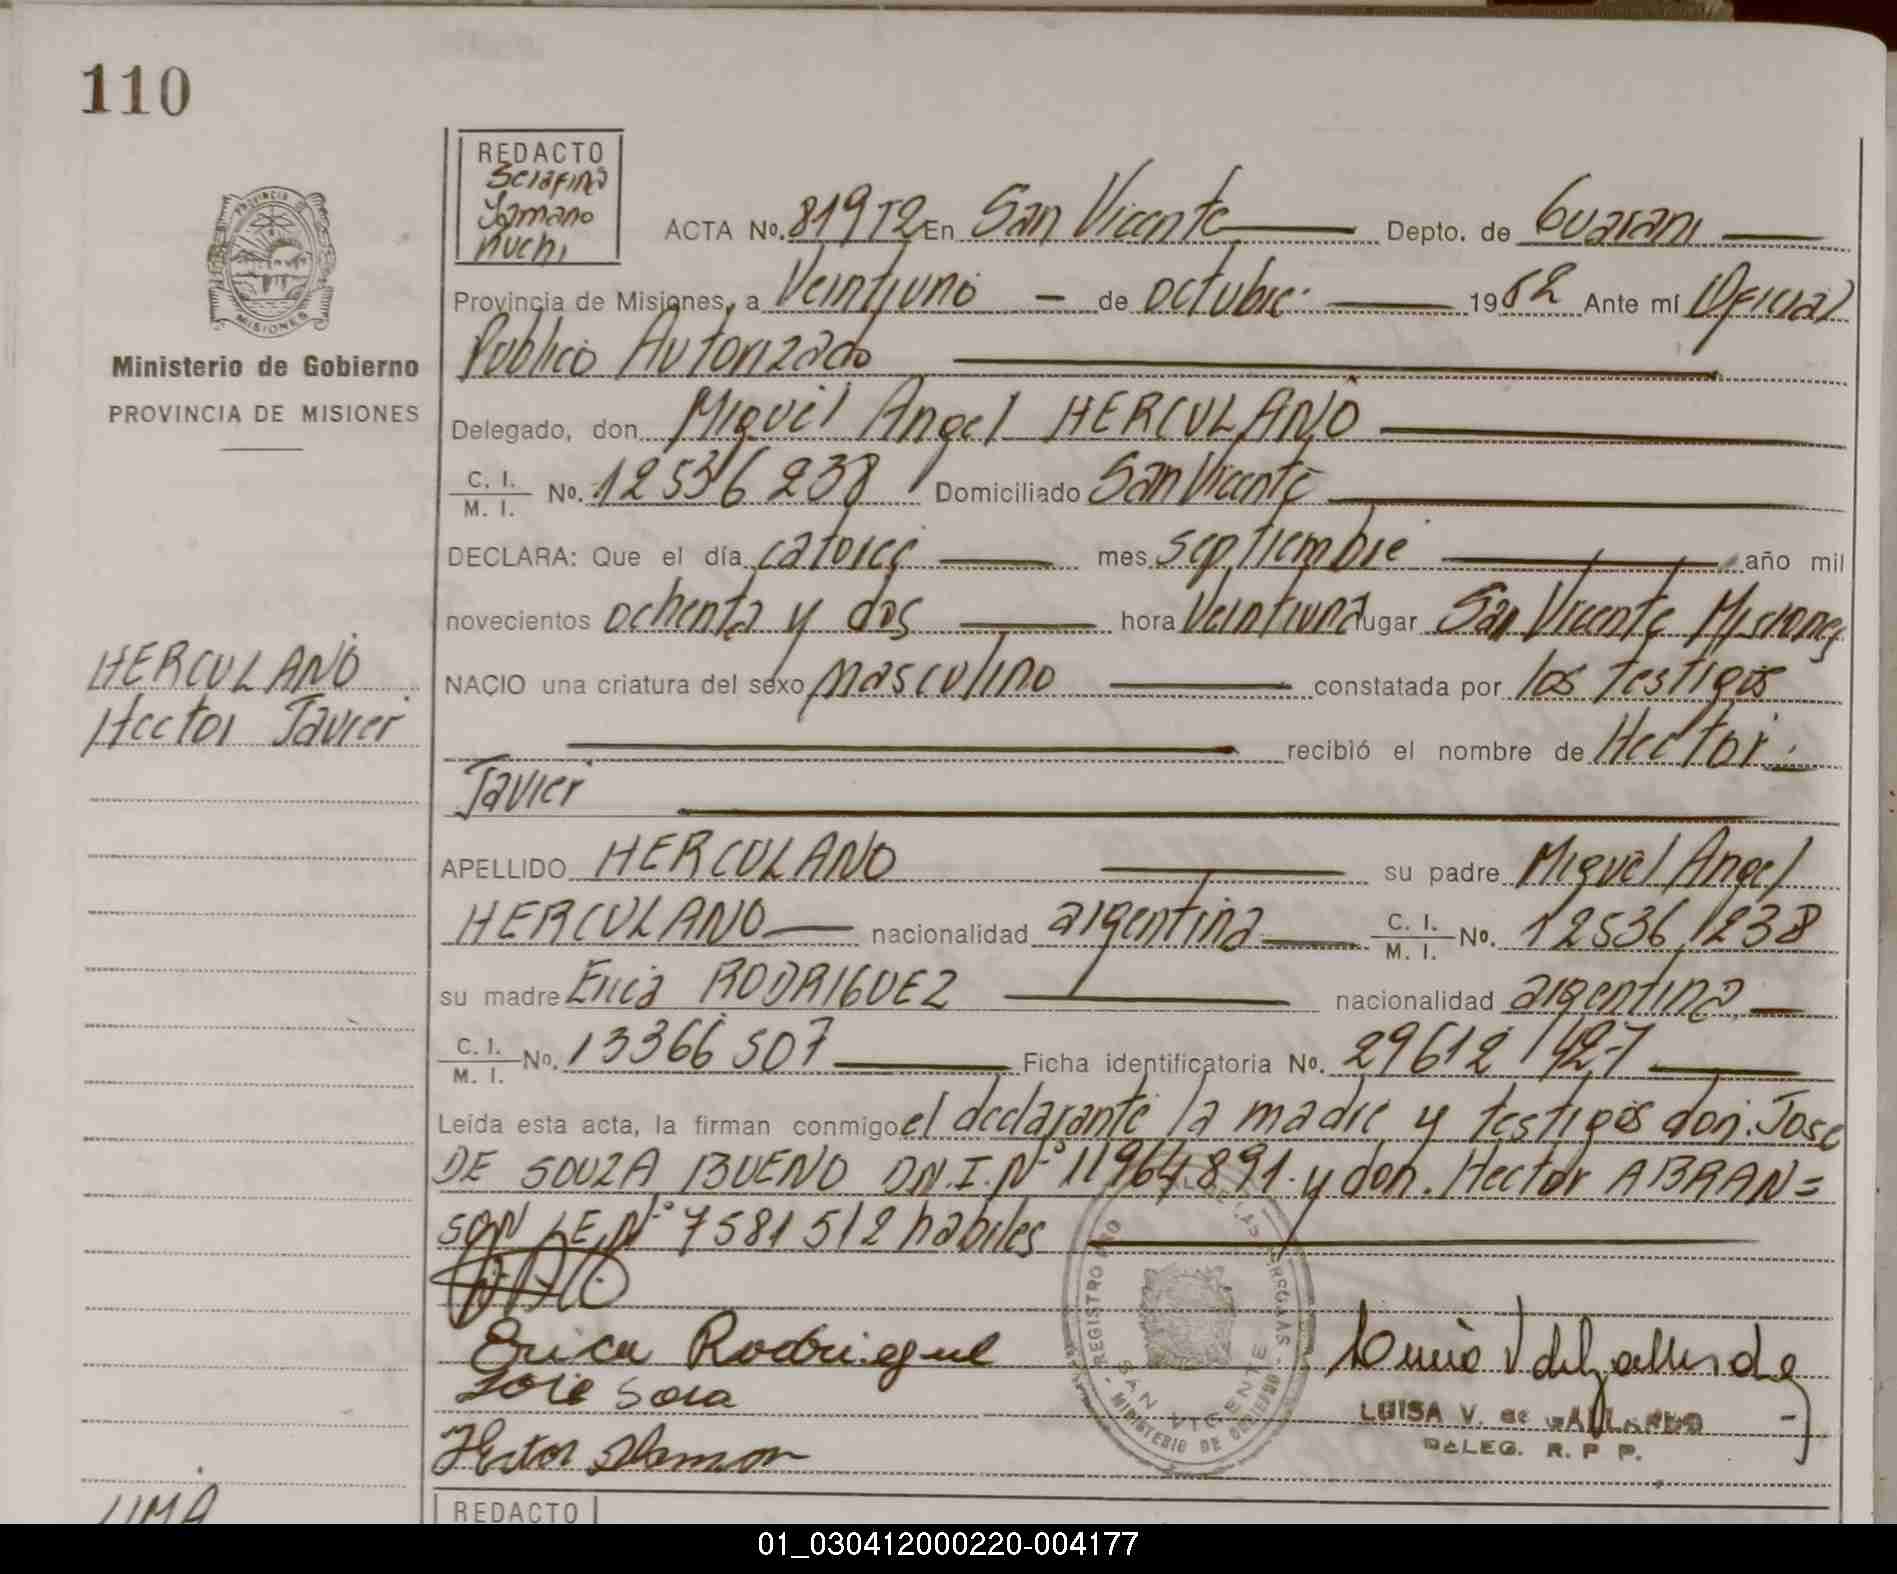 110
REDACTO
Serafina
Zamano
Kuchi
ACTA No. 819T2 En San Vicente Depto. de Guarani
PROVINCIA DE MISIONES
Provincia de Misiones, a Veintiuno - de octubre 1982 Ante mí Oficial
Publico Autorizado
Ministerio de Gobierno
PROVINCIA DE MISIONES
Delegado, don Miguel Angel HERCULANO
C. I.
M. I. No. 12536238 Domiciliado San Vicente
DECLARA: Que el día catorce mes septiembre año mil
novecientos ochenta y dos hora Veintiuna lugar San Vicente Misiones
HERCULANO
Hector Javier
NACIO una criatura del sexo masculino constatada por los testigos
recibió el nombre de Hector
Javier
APELLIDO HERCULANO su padre Miguel Angel
HERCULANO nacionalidad argentina C. I.
M. I. No. 12536238
su madre Erica RODRIGUEZ nacionalidad argentina
C. I.
M. I. No. 13366507 Ficha identificatoria No. 29612/427
Leída esta acta, la firman conmigo el declarante la madre y testigos don: Jose
DE SOUZA BUENO D.N.I. Nº 11964891. y don. Hector ABRAN=
SON L.E. Nº 7581512 habiles
REGISTRO PRO DE LAS PERSONAS
SAN VICENTE
- MINISTERIO DE GOBIERNO -
Erica Rodriguez
Jose Soza
Hector
LUISA V. de GALLARDO
DELEG. R. P. P.
LIMA
REDACTO
01_030412000220-004177